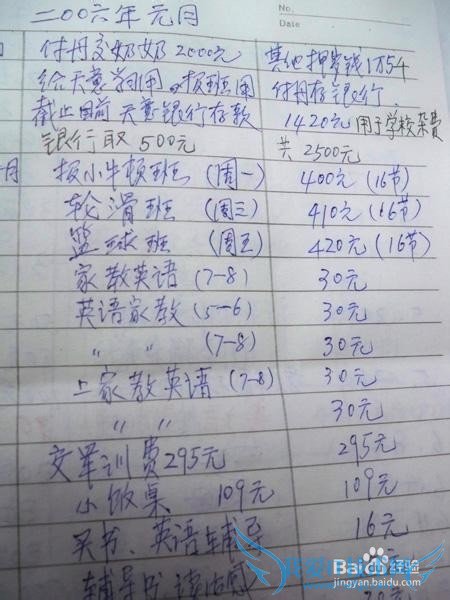 No.
Date
二〇〇六年元月
付丹交奶奶2000元 其他押岁钱1万54
给天意 用 报班用 付丹存银行.
截止目前天意银行存款 1420元用于学校杂费
银行取500元 共2500元
月 报小牛顿班(周一) 400元(16节)
轮滑班(周三) 410元(16节)
篮球班(周五) 420元(16节)
家教英语(7-8) 30元
英语家教(5-6) 30元
〃 〃 (7-8) 30元
上家教英语(7-8) 30元
〃 〃 30元
交军训费295元 295元
小饭桌 109元 109元
买书、英语辅导 16元
辅导 读
Baidu经验
jingyan.baidu.com